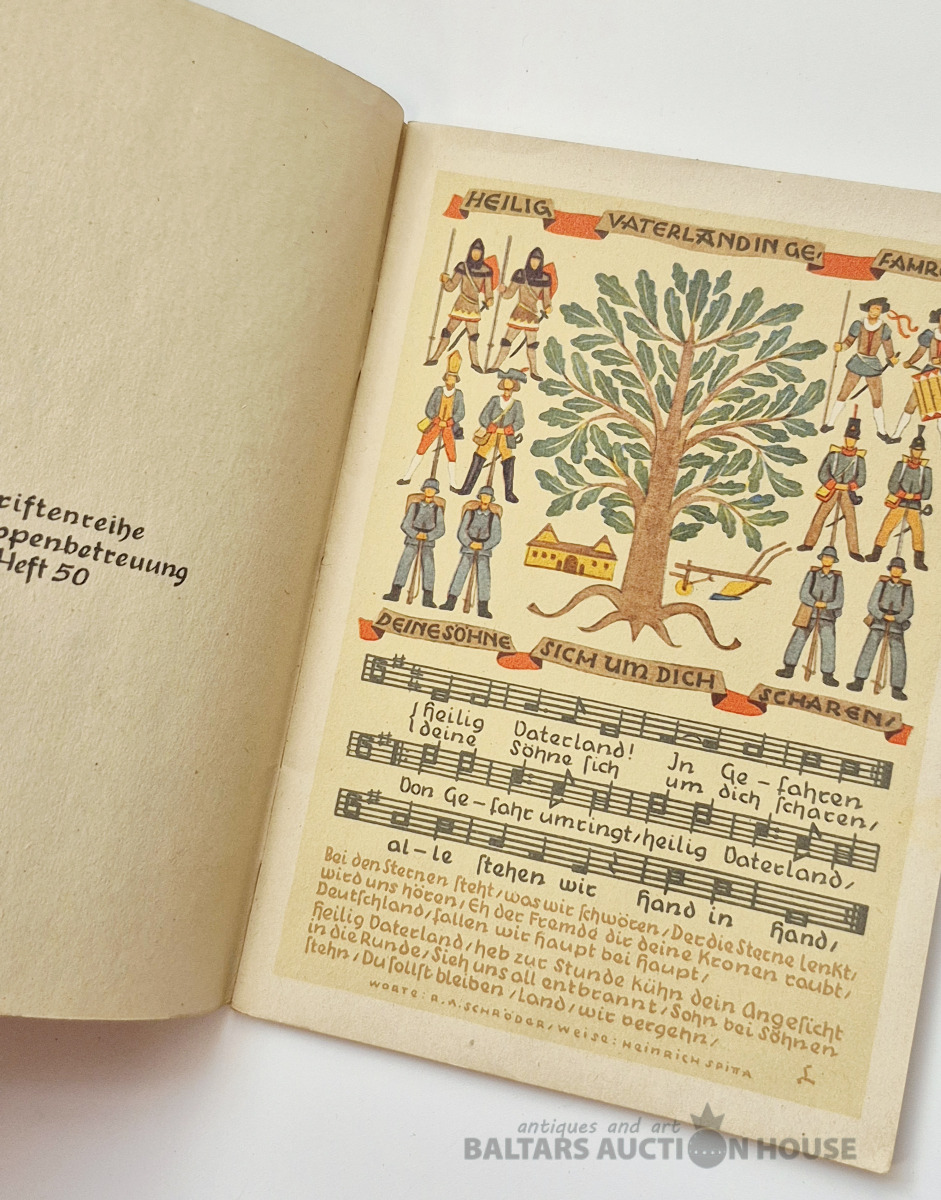 riftenreihe
ppenbetreuung
Heft 50
HEILIG VATERLAND IN GE/ FAHR
DEINE SÖHNE SICH UM DICH SCHAREN/
heilig Vaterland! In Ge-fahren
deine Söhne sich um dich scharen/
Von Ge-fahr umringt/heilig Vaterland/
al-le stehen wir hand in hand/
Bei den Sternen steht/was wir schwören/Der die Sterne lenkt/
wird uns hören/Eh der Fremde dir deine Kronen raubt/
Deutschland/fallen wir haupt bei haupt/
heilig Vaterland/heb zur Stunde kühn dein Angesicht
in die Runde/Sieh uns all entbrannt/Sohn bei Söhnen
stehn/Du sollst bleiben/Land/wir vergehn/
WORTE: R.A.SCHRÖDER/WEISE: HEINRICH SPITTA
antiques and art
BALTARS AUCTION HOUSE